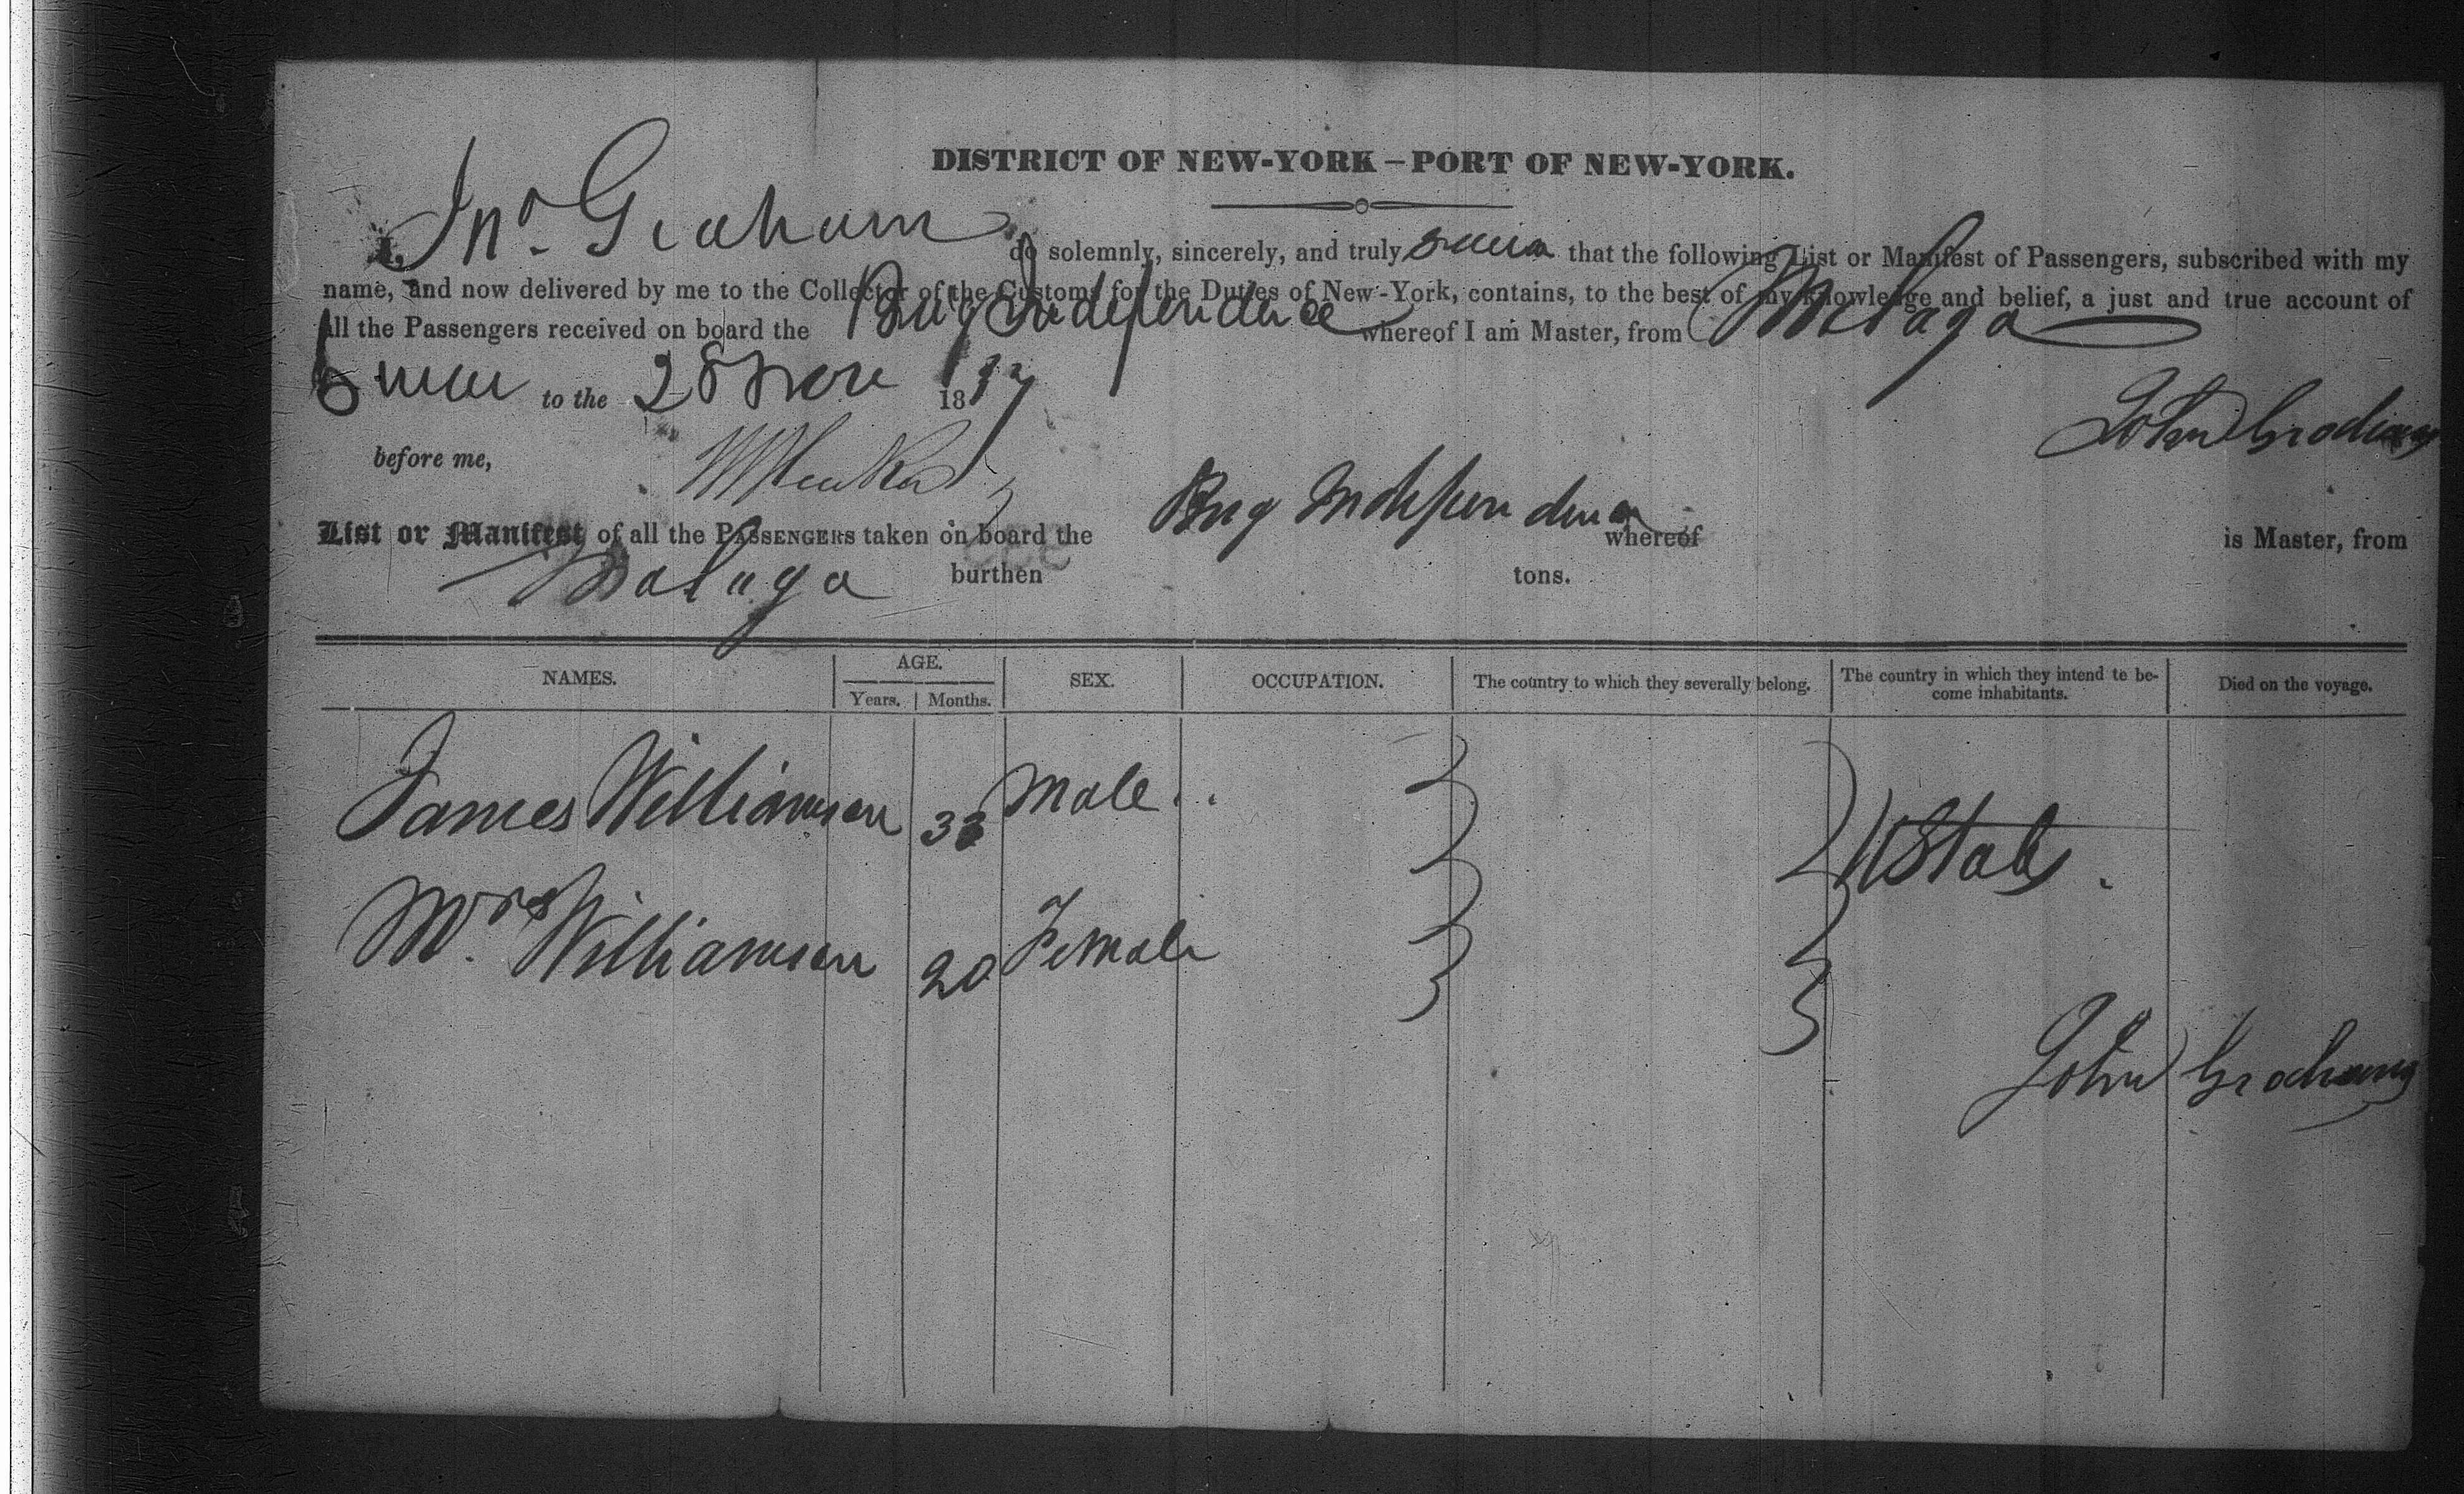 DISTRICT OF NEW-YORK – PORT OF NEW-YORK.
I, Jno. Graham do solemnly, sincerely, and truly swear that the following List or Manifest of Passengers, subscribed with my
name, and now delivered by me to the Collector of the Customs for the Duties of New-York, contains, to the best of my knowledge and belief, a just and true account of
all the Passengers received on board the Brig Independence whereof I am Master, from Malaga
to the 28 1837
John Graham
before me,
List or Manifest of all the PASSENGERS taken on board the Brig Independence whereof is Master, from
Malaga burthen tons.
NAMES. AGE. SEX. OCCUPATION. The country to which they severally belong. The country in which they intend to be- Died on the voyage.
Years. Months. come inhabitants.
James Williamson Male
U States
Mrs. Williamson 20 Female
John Graham